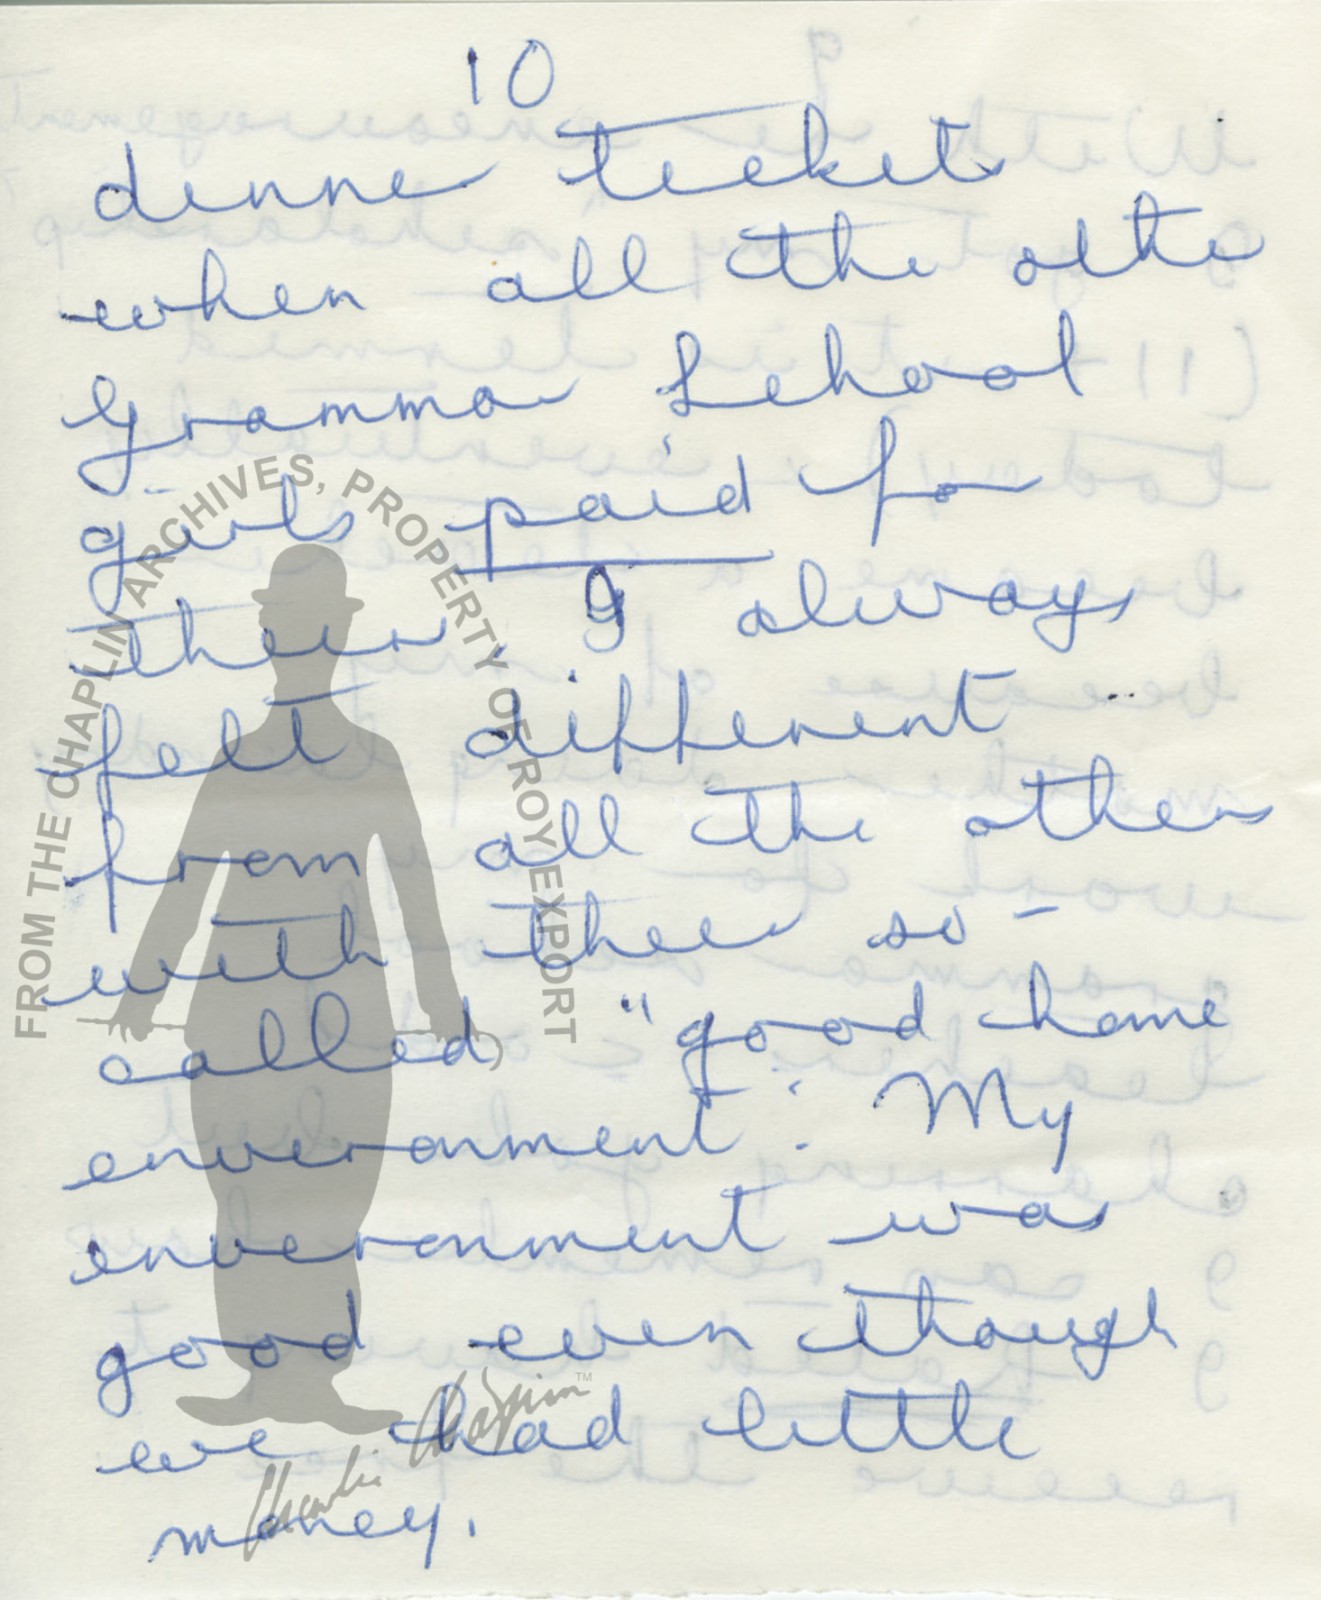 10
dinner tickets
when all the other
Grammar School
girls paid for
theirs. I always
felt different
from all the others
with their so-
called "good home
environment". My
environment was
good even though
we had little
money.
FROM THE CHAPLIN ARCHIVES, PROPERTY OF ROY EXPORT
Charlie Chaplin™